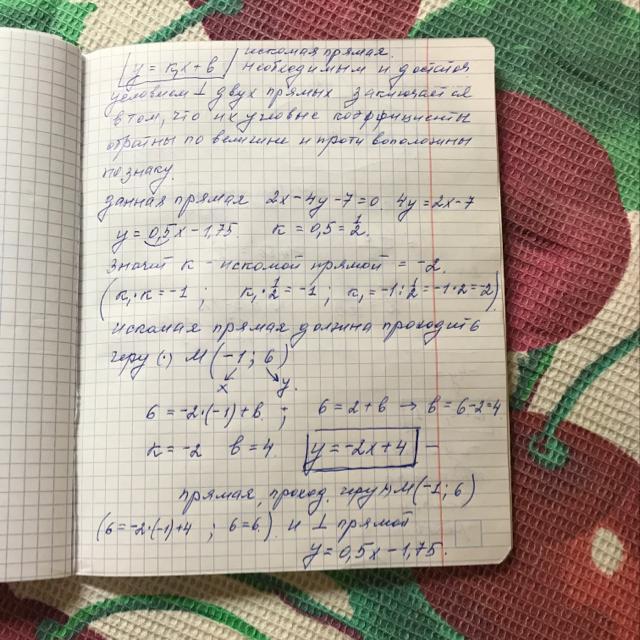 y = k₁x + b искомая прямая.
необходимым и достаточ.
условием ⊥ двух прямых заключается
в том, что их угловые коэффициенты
обратны по величине и противоположны
по знаку.
данная прямая 2x-4y-7=0 4y=2x-7
y = 0,5x - 1,75 k = 0,5 = 1/2.
значит k - искомой прямой = -2.
(k₁·k = -1 ; k₁·1/2 = -1 ; k₁ = -1:1/2 = -1·2 = -2)
искомая прямая должна проходить
через (·) M (-1; 6)
x y.
6 = -2·(-1)+b ; 6 = 2+b → b = 6-2=4
k = -2 b = 4 y = -2x+4 –
прямая, проход. через M(-1; 6)
(6 = -2·(-1)+4 ; 6=6) и ⊥ прямой
y = 0,5x - 1,75.